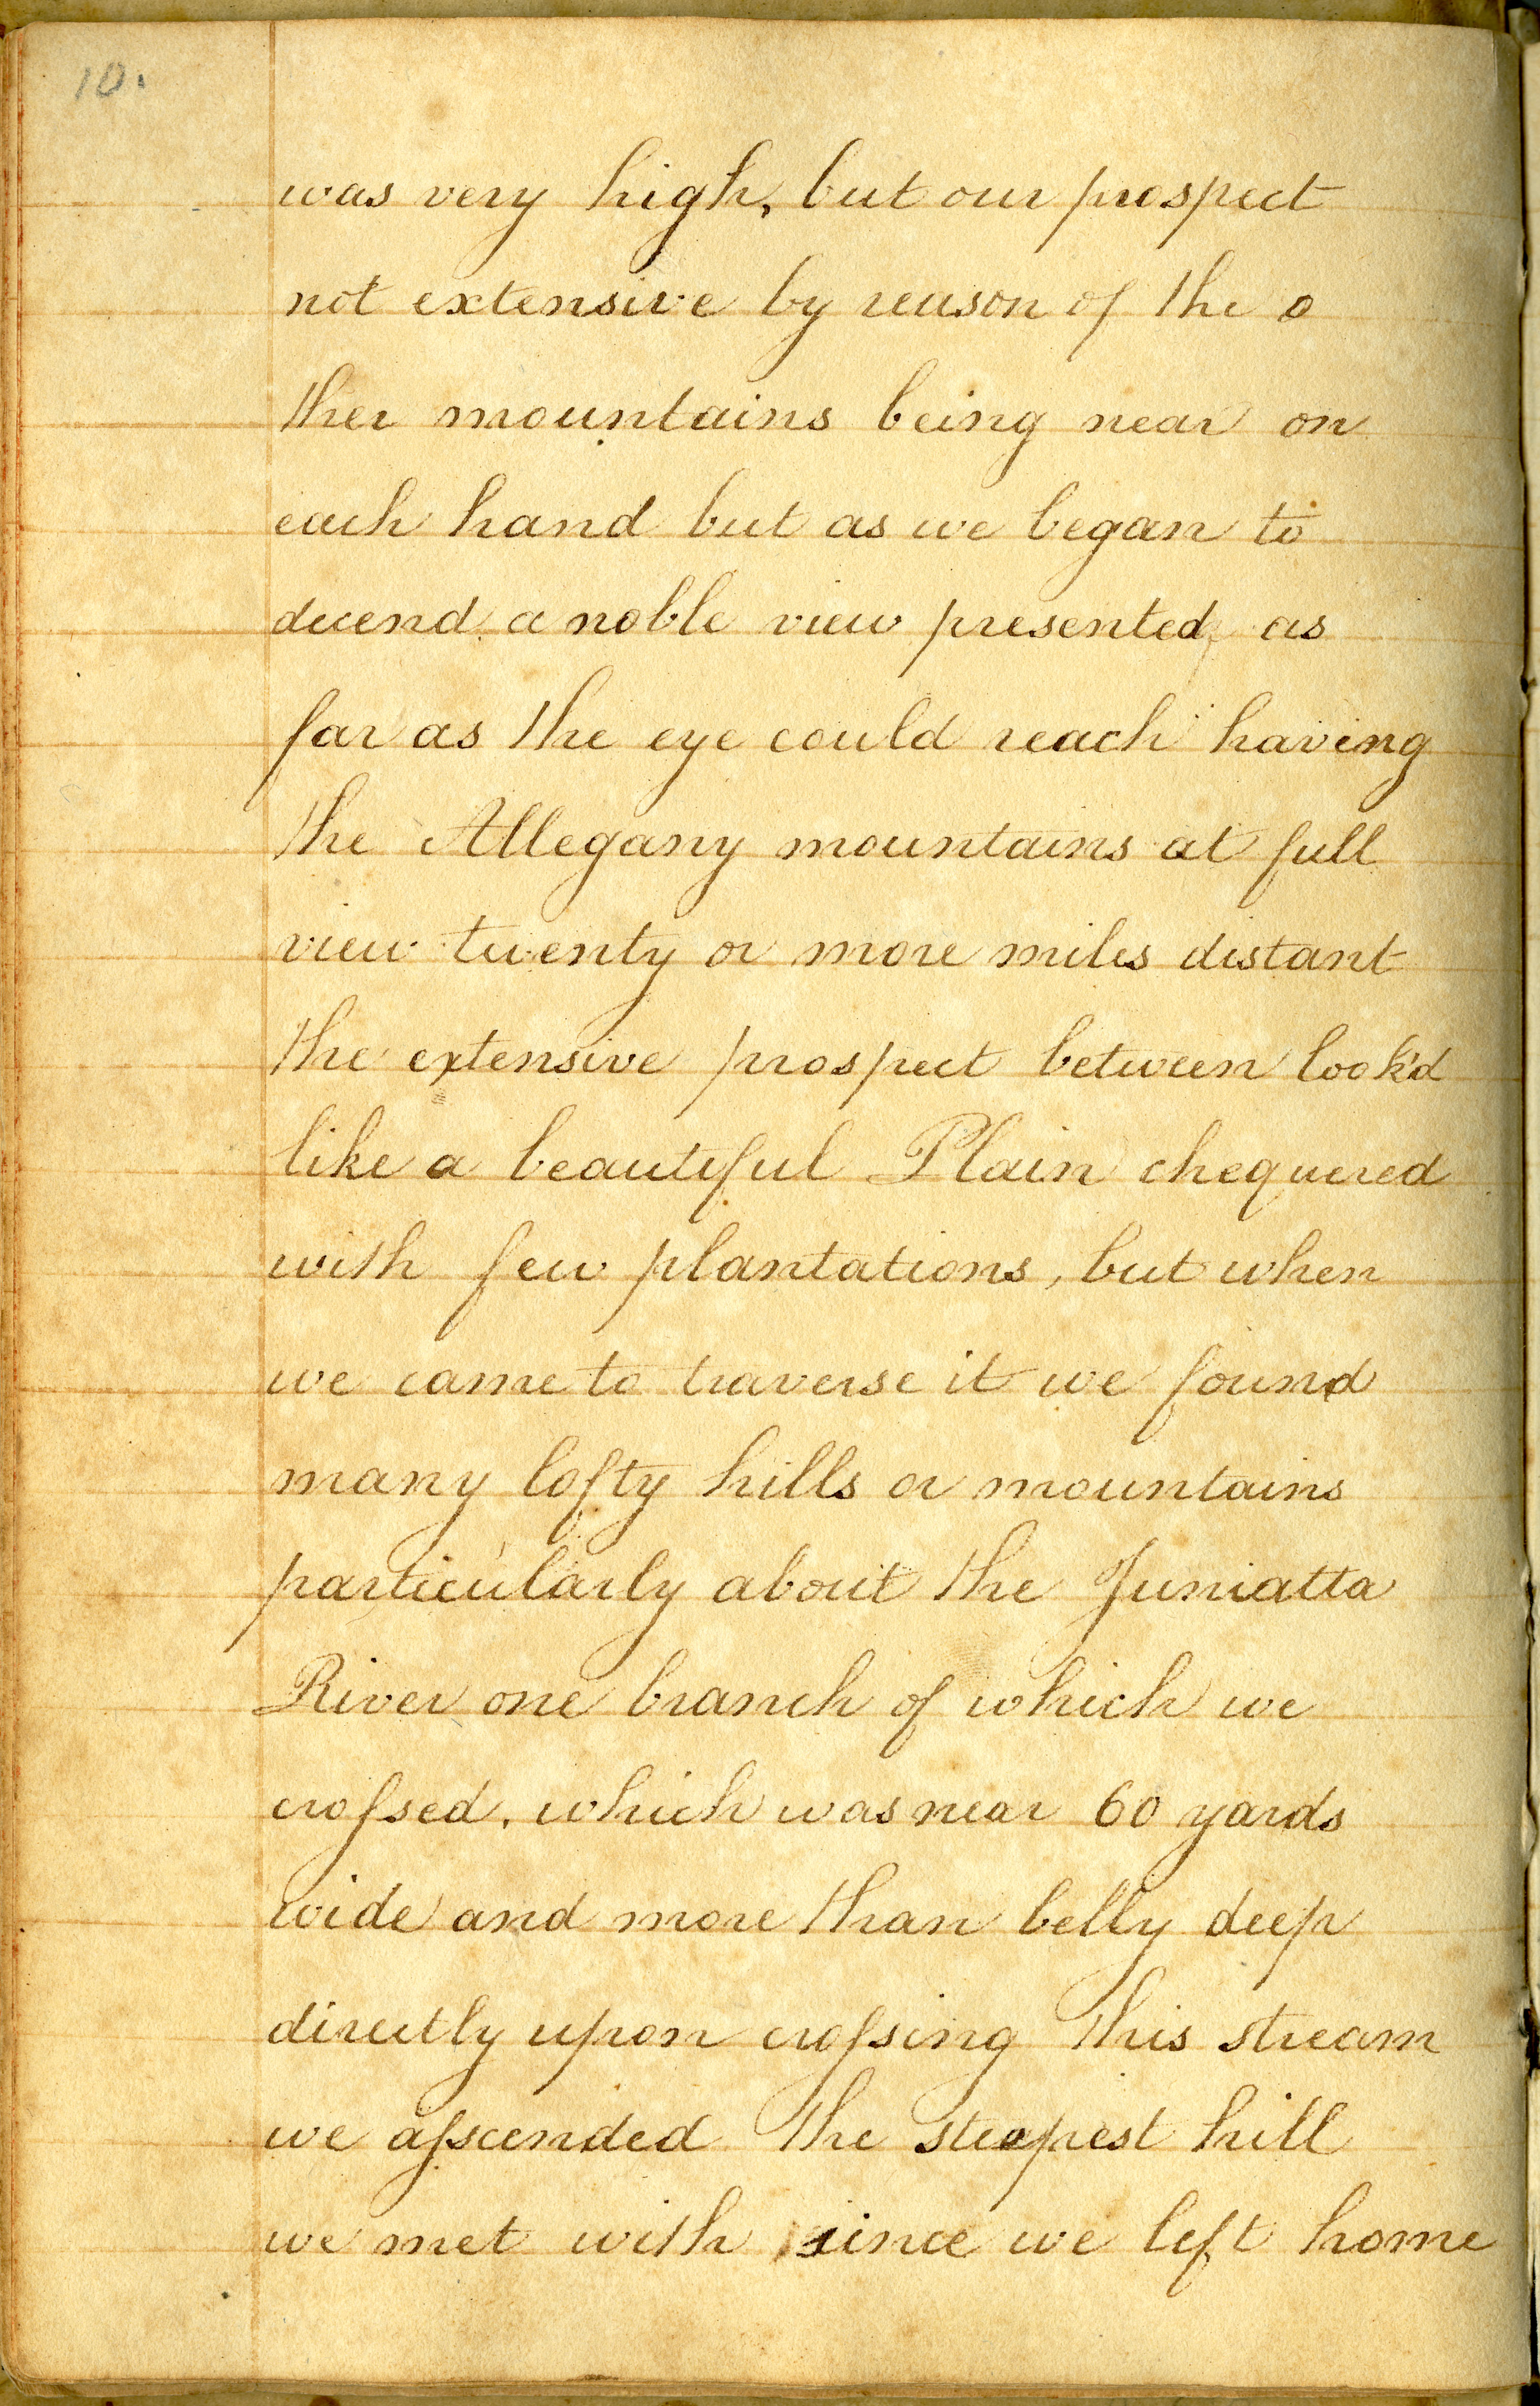 10.
was very high, but our prospect
not extensive by reason of the o
ther mountains being near on
each hand but as we began to
decend a noble view presented, as
far as the eye could reach having
the Allegany mountains at full
view twenty or more miles distant
the extensive prospect between look'd
like a beautiful Plain chequered
with few plantations, but when
we came to traverse it we found
many lofty hills or mountains
particularly about the Juniatta
River one branch of which we
croſsed, which was near 60 yards
wide and more than belly deep
directly upon croſsing this stream
we aſscended the steepest hill
we met with since we left home